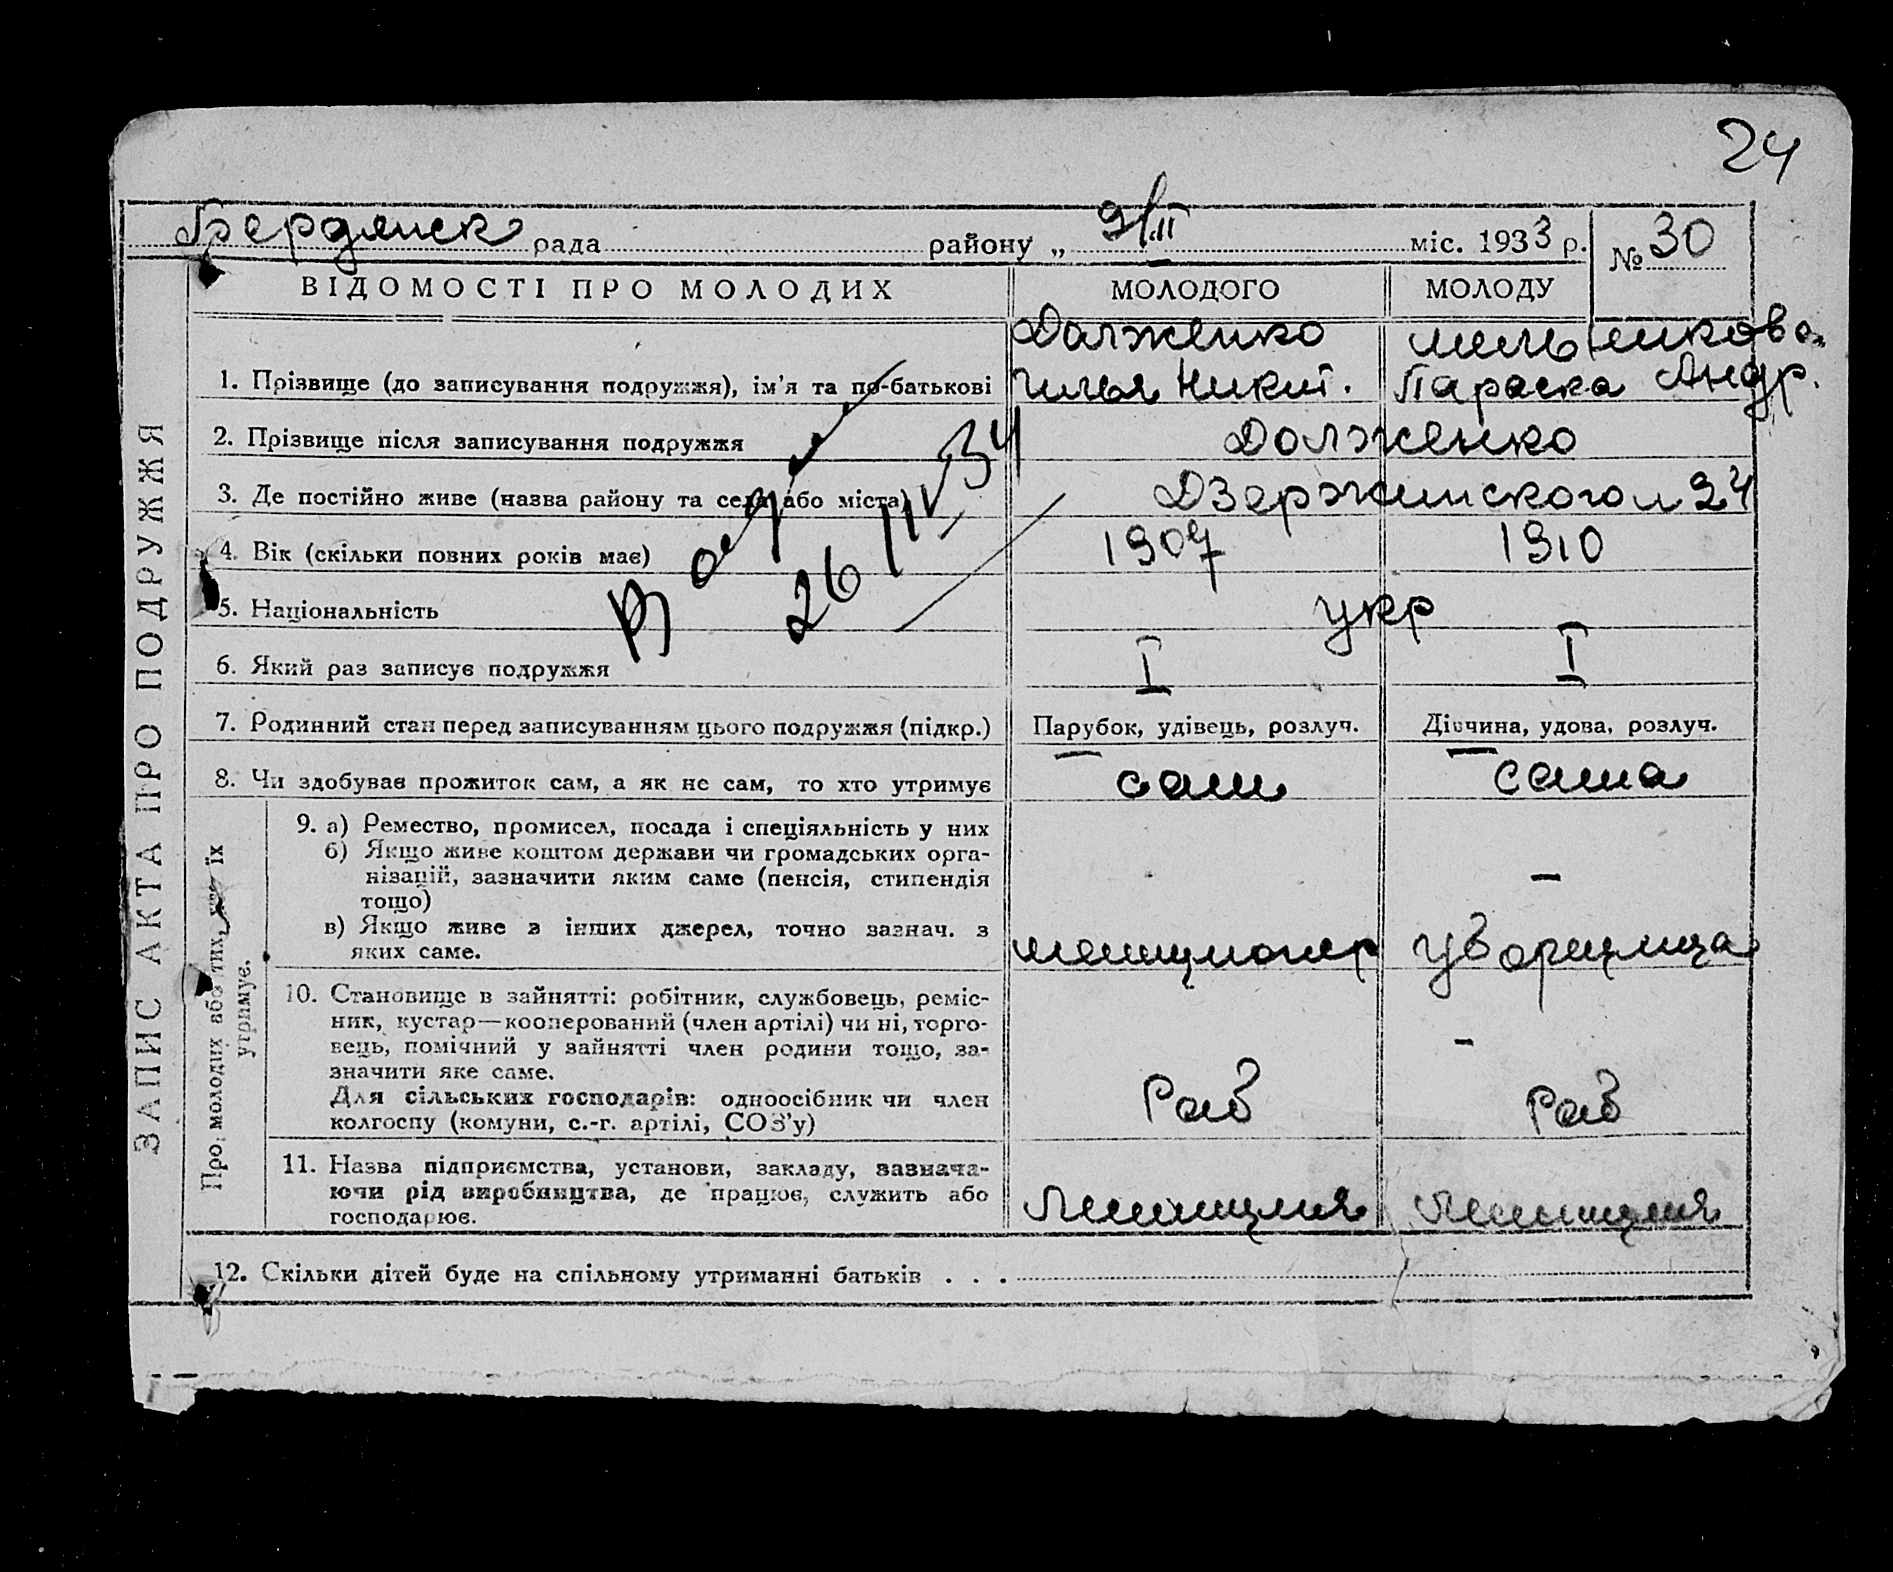 24
Бердянск рада району „ 9/II міс. 1933 р. № 30
ВІДОМОСТІ ПРО МОЛОДИХ МОЛОДОГО МОЛОДУ
Долженко Мельникова
1. Прізвище (до записування подружжя), ім'я та по-батькові Илья Никит. Параска Андр.
2. Прізвище після записування подружжя Долженко
3. Де постійно живе (назва району та села або міста) Дзержинского 24
4. Вік (скільки повних років має) 1907 1910
5. Національність укр
6. Який раз записує подружжя I I
7. Родинний стан перед записуванням цього подружжя (підкр.) Парубок, удівець, розлуч. Дівчина, удова, розлуч.
8. Чи здобував прожиток сам, а як не сам, то хто утримує сам сама
9. а) Ремество, промисел, посада і спеціяльність у них
б) Якщо живе коштом держави чи громадських орга-
нізацій, зазначити яким саме (пенсія, стипендія —
тощо)
в) Якщо живе з інших джерел, точно зазнач. з
яких саме. милиционер уборщица
10. Становище в зайнятті: робітник, службовець, реміс-
ник, кустар—кооперований (член артілі) чи ні, торго-
вець, помічний у зайнятті член родини тощо, за- -
значити яке саме.
Для сільських господарів: одноосібник чи член
колгоспу (комуни, с.-г. артілі, СОЗ'у) Раб Раб
11. Назва підприємства, установи, закладу, зазнача-
ючи рід виробництва, де працює, служить або
господарює. Милиция Милиция
12. Скільки дітей буде на спільному утриманні батьків . . .
ЗАПИС АКТА ПРО ПОДРУЖЖЯ
Про молодих або тих, хто їх
утримує.
26 II 34